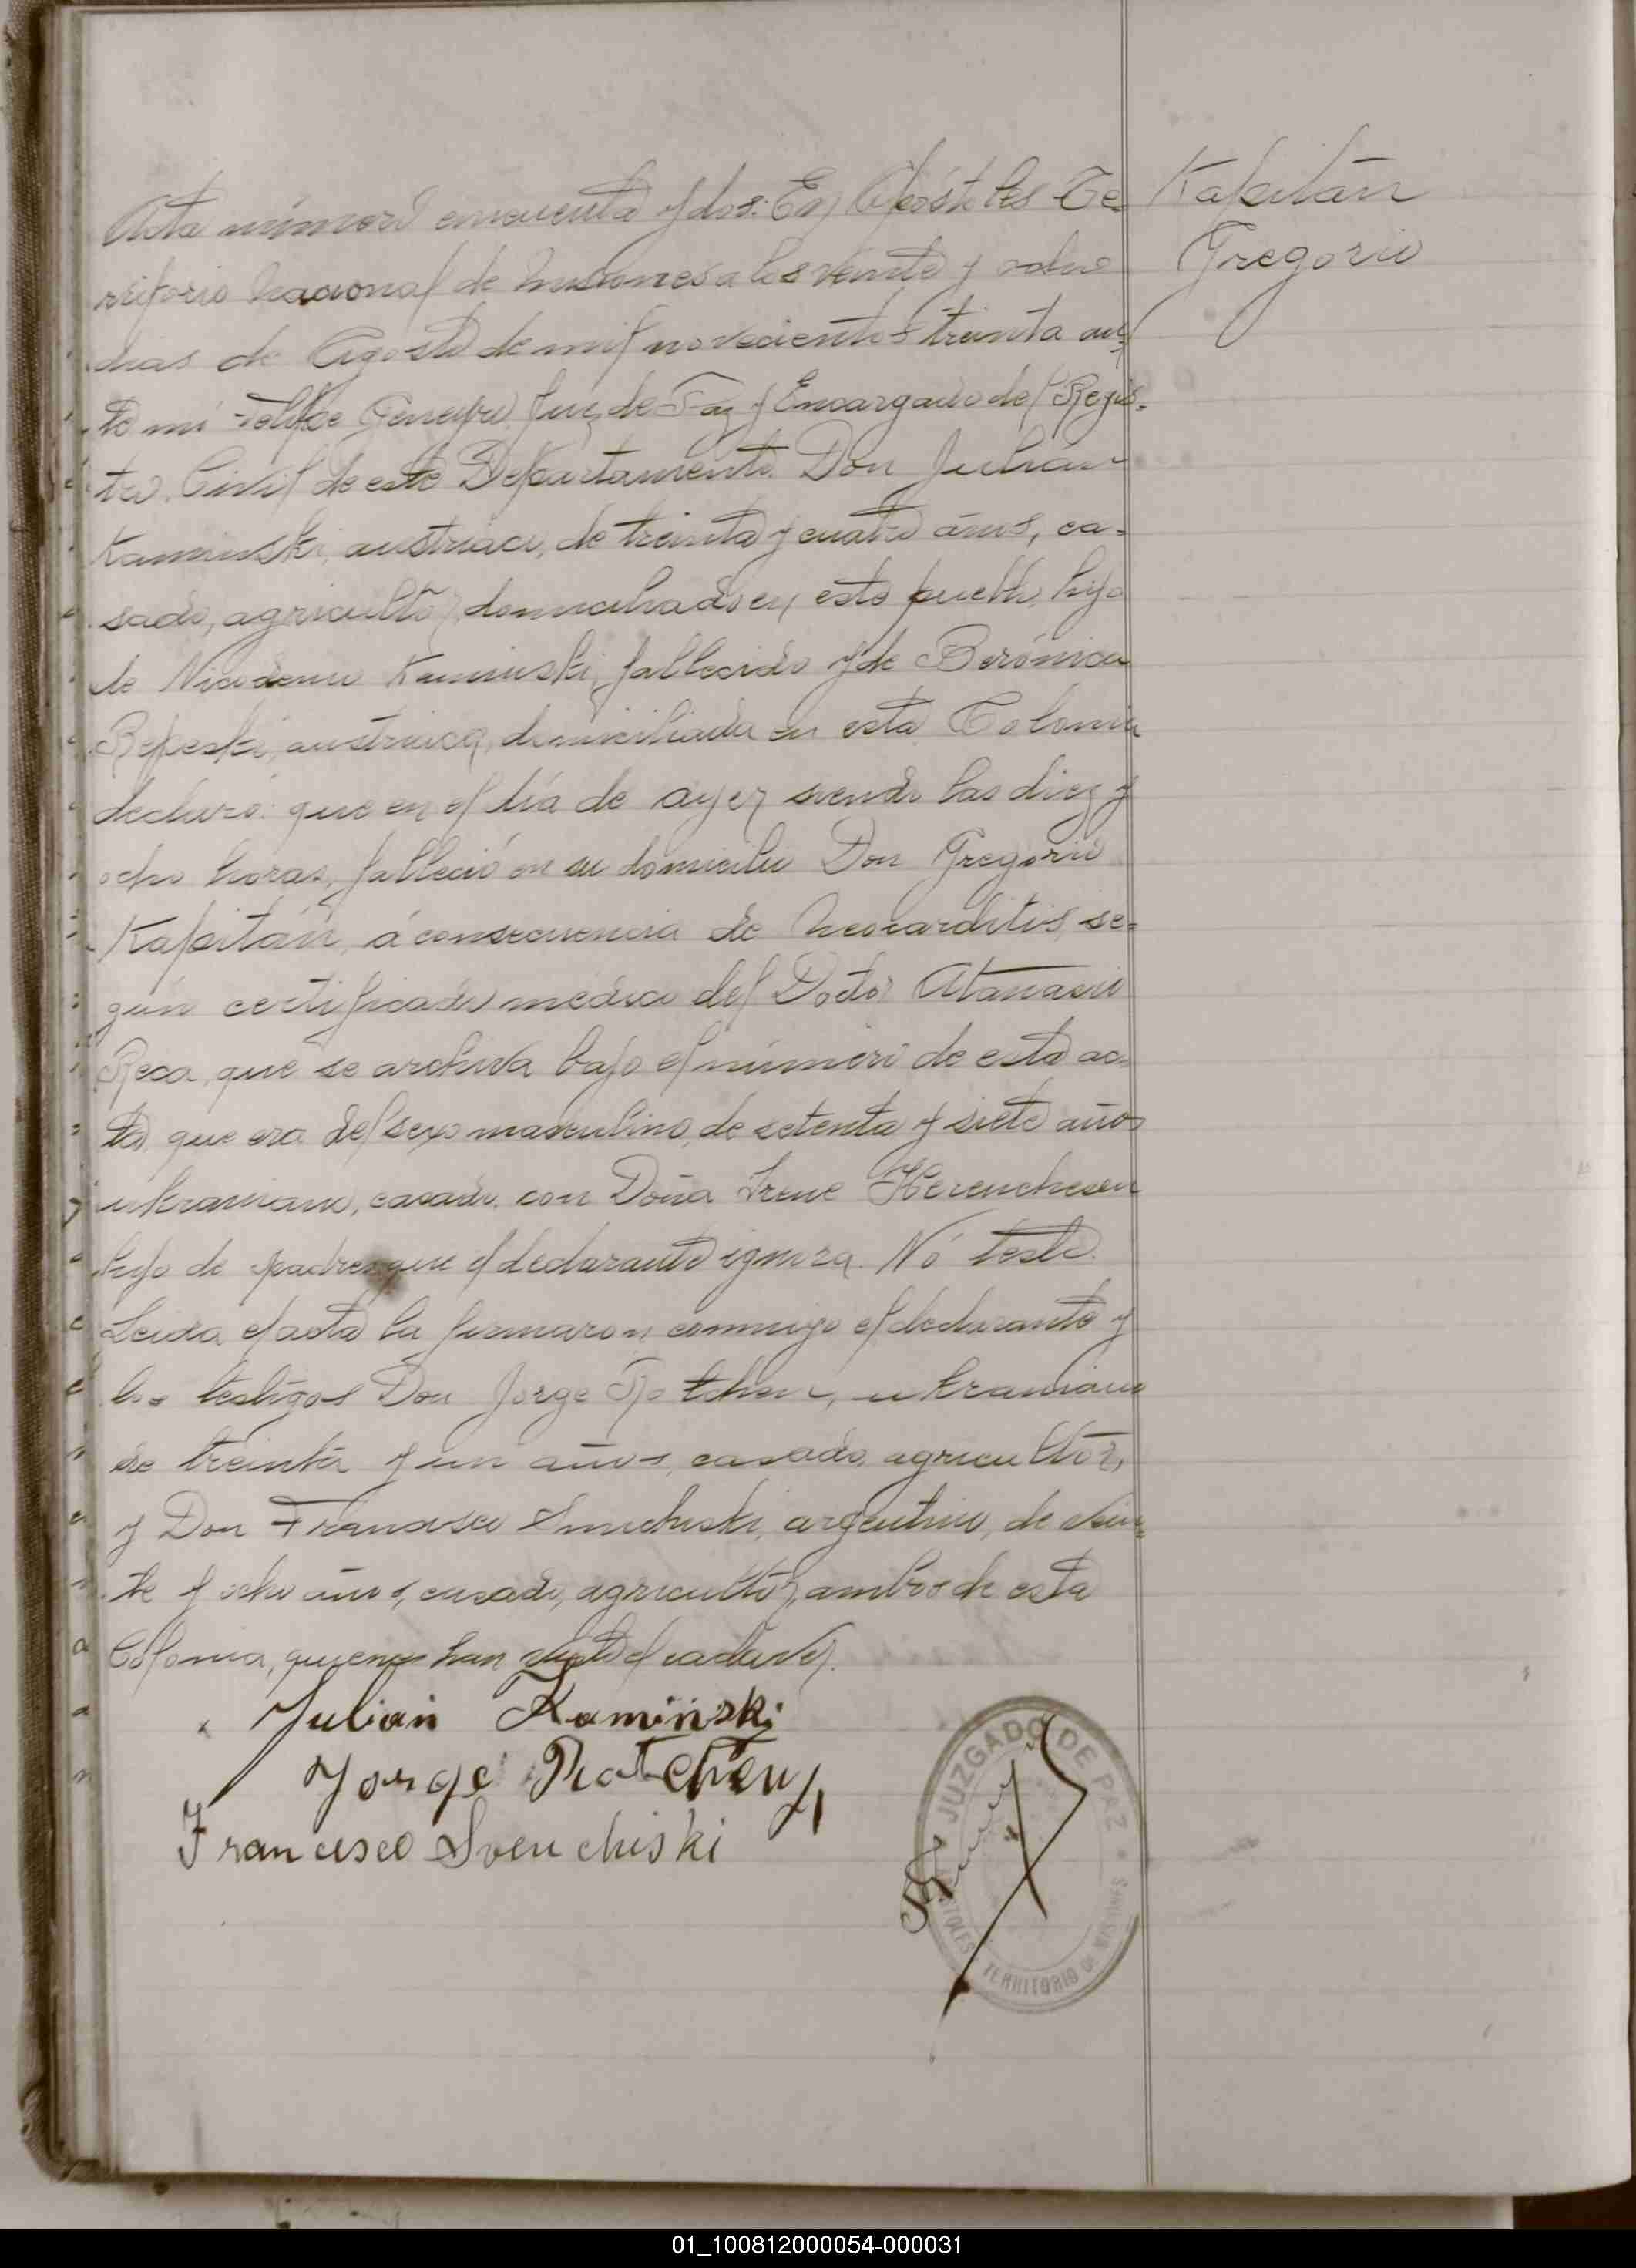 Kapitán
Gregorio
Acta número cincuenta y dos: En Apóstoles Te=
rritorio Nacional de Misiones a los veinte y ocho
dias de Agosto de mil novecientos treinta an=
te mi Felipe Juez de Paz y Encargado del Regis-
tro Civil de este Departamento. Don Julian
Kaminski, austriaco, de treinta y cuatro años, ca=
sado, agricultor, domiciliado en este pueblo, hijo
de Nicodemo Kaminski, fallecido y de Berónica
austriaca, domiciliada en esta Colonia
declaró: que en el día de ayer siendo las diez y
ocho horas, falleció en su domicilio Don Gregorio
Kapitán, á consecuencia de se=
gún certificado médico del Doctor Atanasio
Reca, que se archiva bajo el número de esta ac=
ta, que era del sexo masculino, de setenta y siete años
ukraniano, casado con Doña Irene
hijo de padres que el declarante ignora. Nó testó.
Leida el acta la firmaron conmigo el declarante y
los testigos Don Jorge ukraniano
de treinta y un años, casado, agricultor,
y Don Francisco argentino, de vein=
te y ocho años, casado, agricultor, ambos de esta
Colonia, quienes han visto el cadaver.
Julian Kaminski
Jorge
Francisco Svenchiski
JUZGADO DE PAZ
TERRITORIO DE MISIONES
01_100812000054-000031